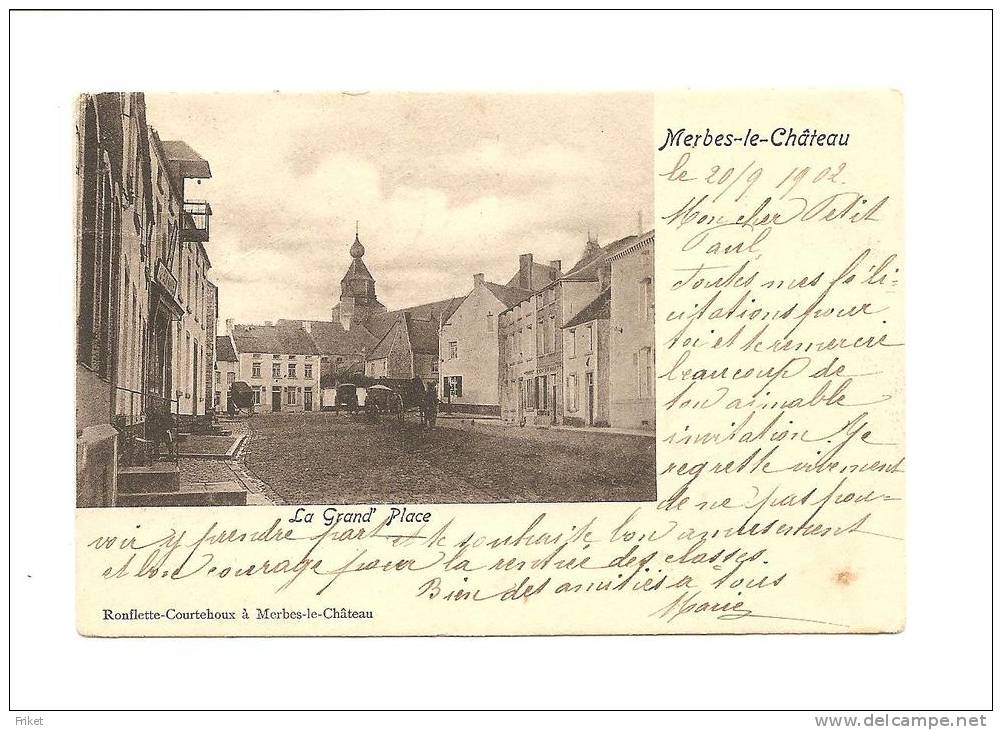 Merbes-le-Château
le 20/9 1902.
Mon cher Petit
Paul,
Toutes mes féli-
citations pour
toi et te remercie
beaucoup de
ton aimable
invitation. Je
regrette vivement
de ne pas pou-
La Grand' Place
voir y prendre part et te souhaite bon amusement
et bon courage pour la rentrée des classes.
Bien des amitiés à tous
Marie
Ronflette-Courtehoux à Merbes-le-Château
Friket
www.delcampe.net